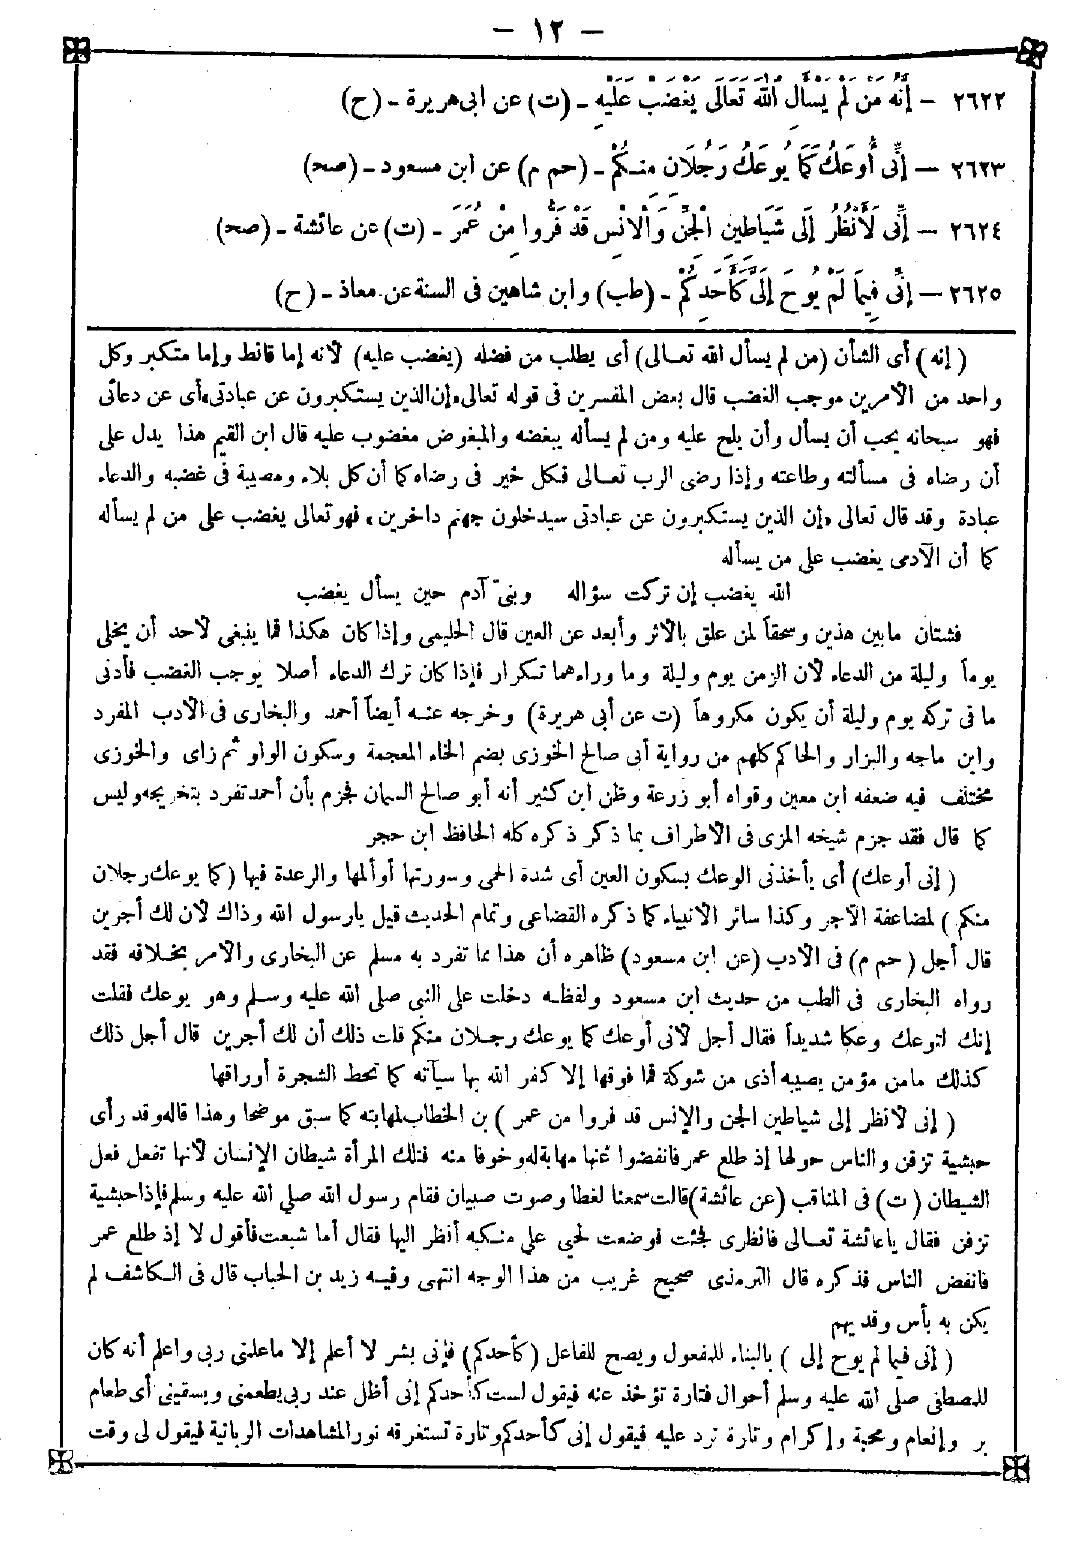 – ١٢ –
٢٦٢٢ – إِنَّهُ مَنْ لَمْ يَسْأَلِ اللهَ تَعَالَى يَغْضَبْ عَلَيْهِ – (ت) عن ابى هريرة – (ح)
٢٦٢٣ – إِنِّى أُوعَكُ كَمَا يُوعَكُ رَجُلَانِ مِنْكُمْ – (حم م) عن ابن مسعود – (صح)
٢٦٢٤ – إِنِّى لَأَنْظُرُ إِلَى شَيَاطِينِ الْجِنِّ وَالْإِنْسِ قَدْ فَرُّوا مِنْ عُمَرَ – (ت) عن عائشة – (صح)
٢٦٢٥ – إِنِّى فِيمَا لَمْ يُوحَ إِلَىَّ كَأَحَدِكُمْ – (طب) وابن شاهين فى السنة عن معاذ – (ح)
( إنه ) أى الشأن (من لم يسأل الله تعـالى) أى يطلب من فضله (يغضب عليه) لأنه إما قانط وإما متكبر وكل
واحد من الأمرين موجب الغضب قال بعض المفسرين فى قوله تعالى «إن الذين يستكبرون عن عبادتى» أى عن دعائى
فهو سبحانه يحب أن يسأل وأن يلح عليه ومن لم يسأله يبغضه والمبغوض مغضوب عليه قال ابن القيم هذا يدل على
أن رضاه فى مسألته وطاعته وإذا رضى الرب تعـالى فكل خير فى رضاه كما أن كل بلاء ومصيبة فى غضبه والدعاء
عبادة وقد قال تعالى «إن الذين يستكبرون عن عبادتى سيدخلون جهنم داخرين» فهو تعالى يغضب على من لم يسأله
كما أن الآدمى يغضب على من يسأله
الله يغضب إن تركت سؤاله وبنىّ آدم حين يسأل يغضب
فشتان مابين هذين وسحقاً لمن علق بالأثر وأبعد عن العين قال الحليمى وإذا كان هكذا فما ينبغى لأحد أن يخلى
يوماً وليلة من الدعاء لأن الزمن يوم وليلة وما وراءهما تكرار فإذا كان ترك الدعاء أصلا يوجب الغضب فأدنى
ما فى تركه يوم وليلة أن يكون مكروهاً (ت عن أبى هريرة) وخرجه عنه أيضاً أحمد والبخارى فى الأدب المفرد
وابن ماجه والبزار والحاكم كلهم من رواية أبى صالح الخوزى بضم الخاء المعجمة وسكون الواو ثم زاى والخوزى
مختلف فيه ضعفه ابن معين وقواه أبو زرعة وظن ابن كثير أنه أبو صالح السمان فجزم بأن أحمد تفرد بتخريجه وليس
كما قال فقد جزم شيخه المزى فى الأطراف بما ذكر ذكره كله الحافظ ابن حجر
( إنى أوعك) أى يأخذنى الوعك بسكون العين أى شدة الحمى وسورتها أو ألمها والرعدة فيها (كما يوعك رجلان
منكم ) لمضاعفة الأجر وكذا سائر الأنبياء كما ذكره القضاعى وتمام الحديث قيل يارسول الله وذاك لأن لك أجرين
قال أجل ( حم م) فى الأدب (عن ابن مسعود) ظاهره أن هذا مما تفرد به مسلم عن البخارى والأمر بخـلافه فقد
رواه البخارى فى الطب من حديث ابن مسعود ولفظـه دخلت على النبى صلى الله عليه وسـلم وهو يوعك فقلت
إنك لتوعك وعكا شديداً فقال أجل لأنى أوعك كما يوعك رجـلان منكم قلت ذلك أن لك أجرين قال أجل ذلك
كذلك مامن مؤمن يصيبه أذى من شوكة فما فوقها إلا كفر الله بها سيآته كما تحط الشجرة أوراقها
( إنى لأنظر إلى شياطين الجن والإنس قد فروا من عمر ) بن الخطاب لمهابته كما سبق موضحا وهذا قاله وقد رأى
حبشية تزفن والناس حولها إذ طلع عمر فانفضوا عنها مهابة له وخوفا منه فتلك المرأة شيطان الإنسان لأنها تفعل فعل
الشيطان ( ت) فى المناقب (عن عائشة) قالت سمعنا لغطا وصوت صبيان فقام رسول الله صلى الله عليه وسلم فإذا حبشية
تزفن فقال ياعائشة تعـالى فانظرى فجئت فوضعت لحيى على منـكبه أنظر اليها فقال أما شبعت فأقول لا إذ طلع عمر
فانفض الناس فذكره قال الترمذى صحيح غريب من هذا الوجه انتهى وفيـه زيد بن الحباب قال فى الـكاشف لم
يكن به بأس وقد يهم
( إنى فيما لم يوح إلى ) بالبناء للمفعول ويصح للفاعل (كأحدكم) فإنى بشر لا أعلم إلا ماعلمنى ربى واعلم أنه كان
للمصطفى صلى الله عليه وسلم أحوال فتارة تؤخذ عنه فيقول لست كأحدكم إنى أظل عند ربى يطعمنى ويسقينى أى طعام
بر وإنعام ومحبة وإكرام وتارة ترد عليه فيقول إنى كأحدكم وتارة تستغرقه نور المشاهدات الربانية فيقول لى وقت